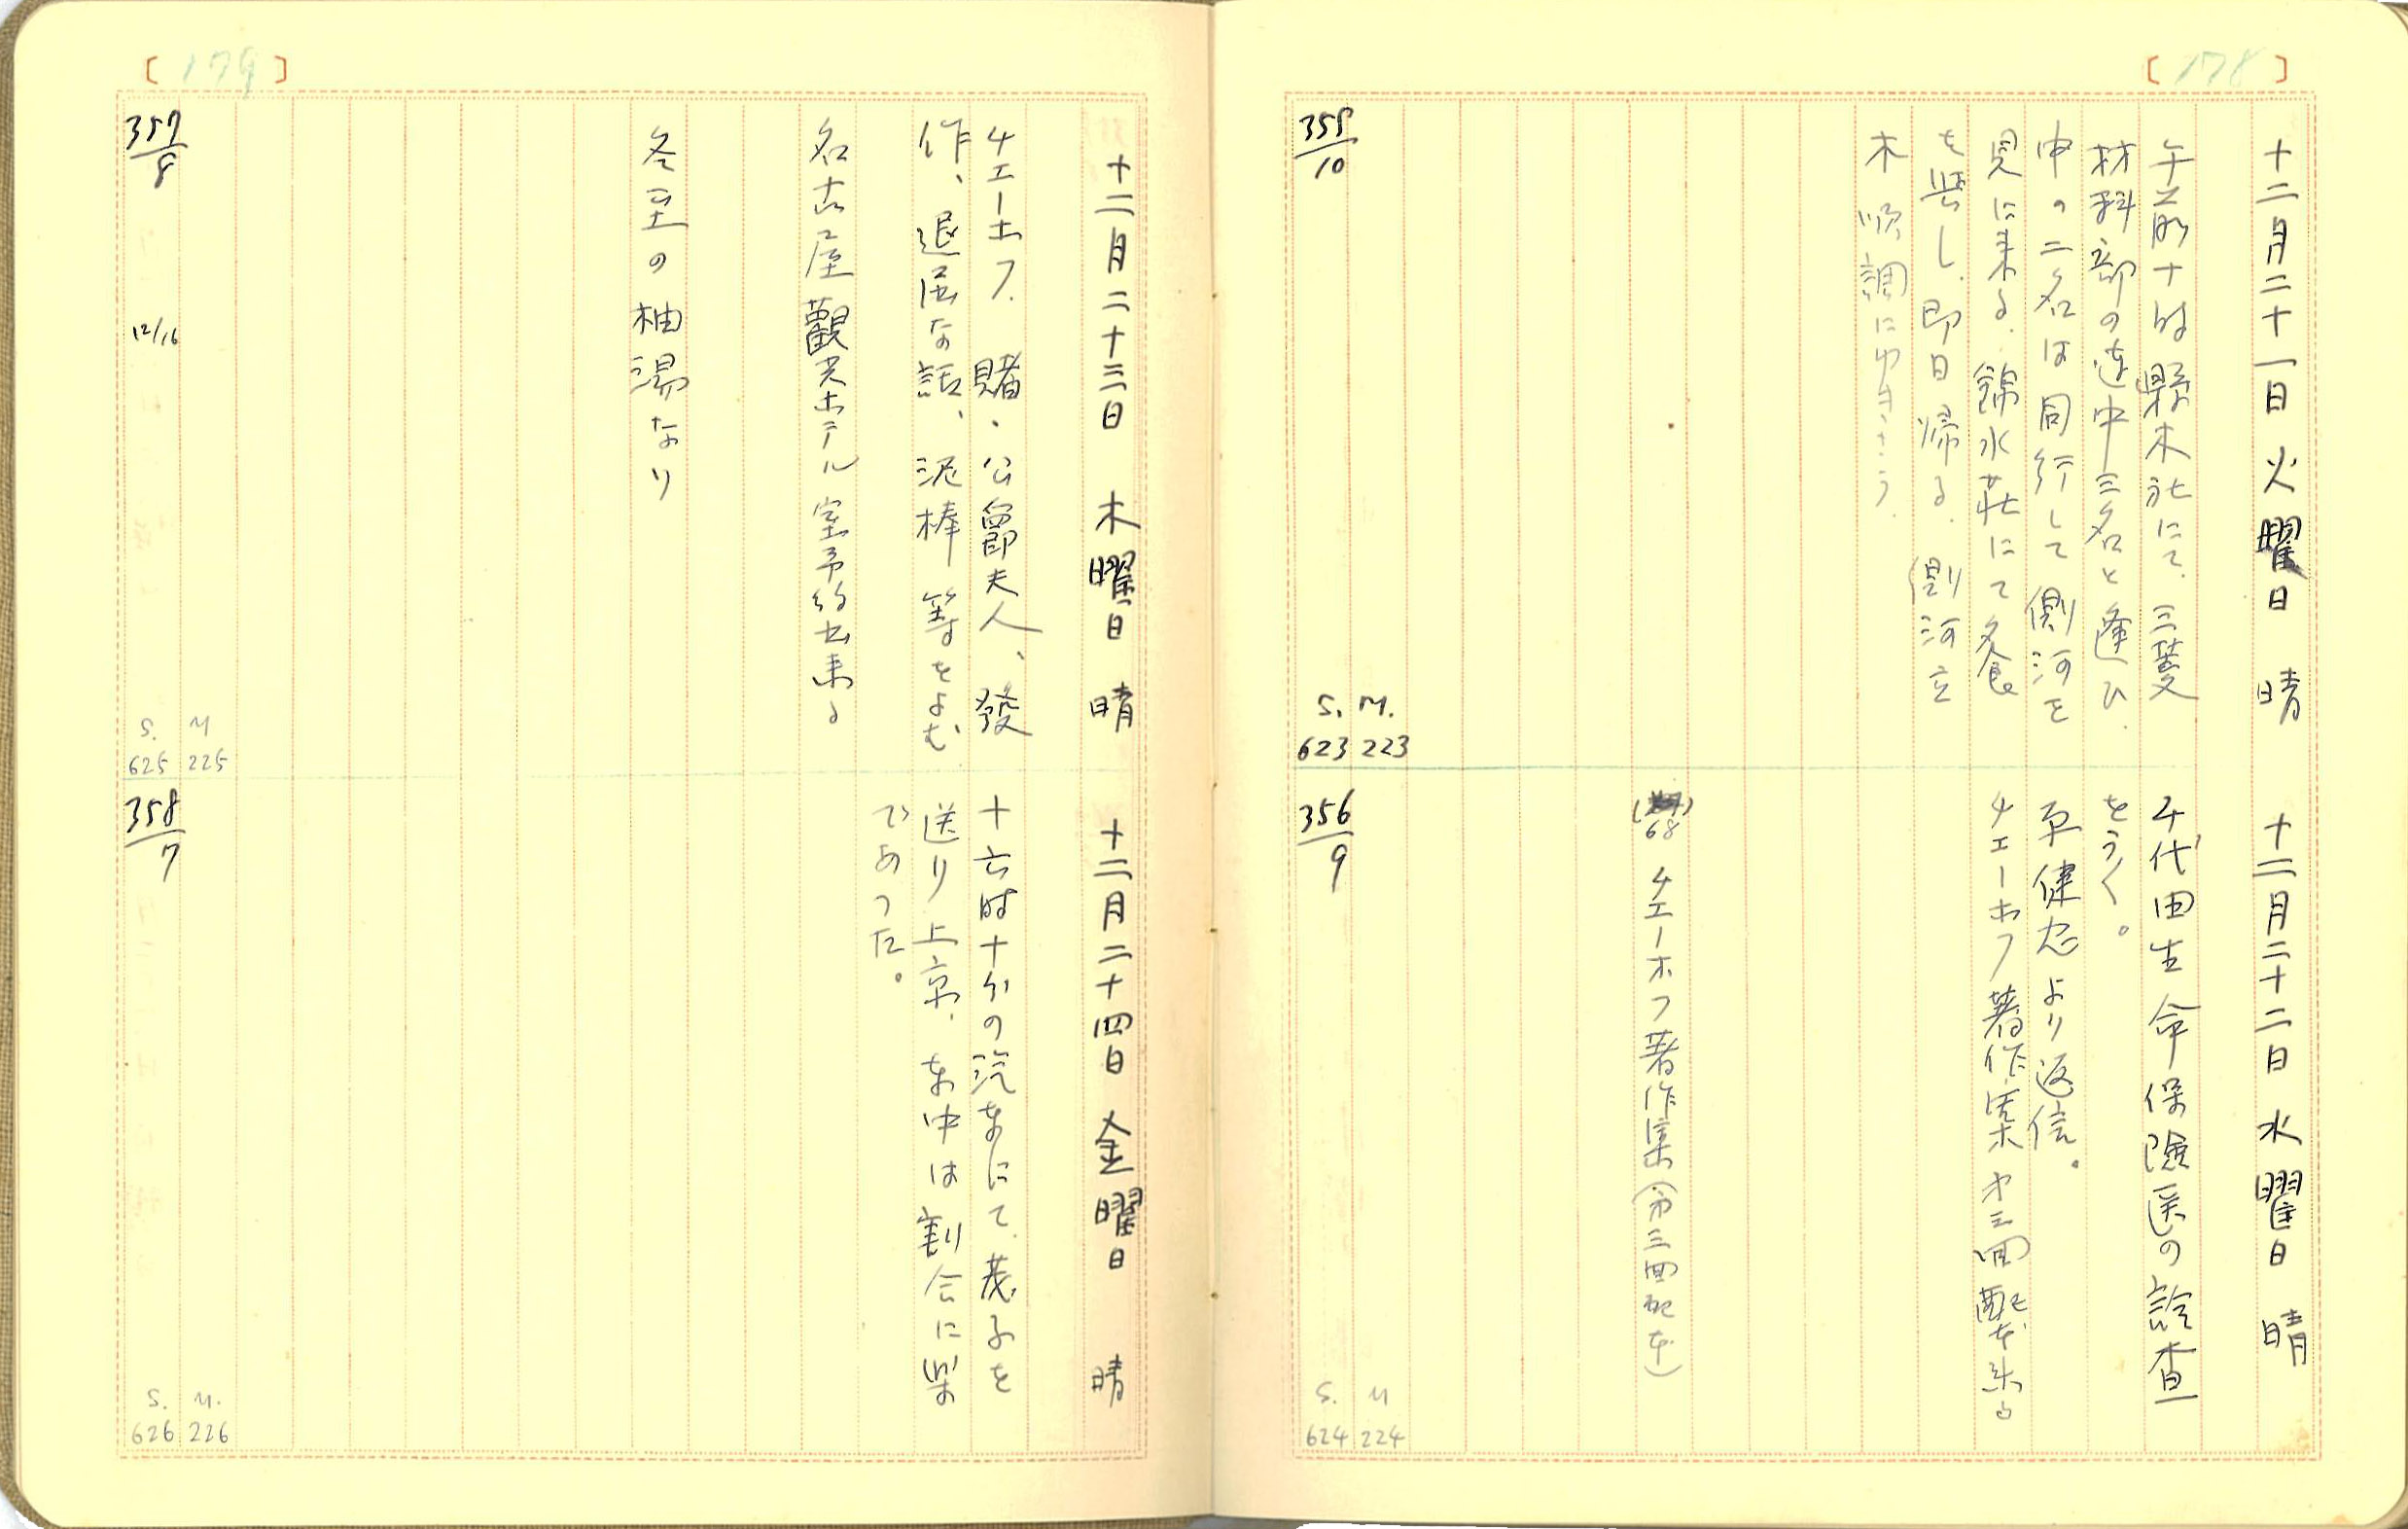 [178]
十二月二十一日 火曜日 晴
午前十時縣木社にて、三菱
材料部の連中三名と逢ひ、
中の二名は同行して側河を
見に来る、錦水荘にて夕食
を呉し、即日帰る、側河立
木順調にゆきさう
355/10
S. M.
623 223
十二月二十二日 水曜日 晴
千代田生命保険医の診査
をうく。
平健忠より返信。
チェーホフ著作集 第三回配本来る
(68) チェーホフ著作集(第三回配本)
356/9
S. M
624 224
[179]
十二月二十三日 木曜日 晴
チェーホフ、賭、公爵夫人、發
作、退屈な話、泥棒 等をよむ
名古屋觀光ホテル室予約出来る
冬至の柚湯なり
357/8
12/16
S. M
625 225
十二月二十四日 金曜日 晴
十六時十分の汽車にて、茂子を
送り上京、車中は割合に楽
であつた。
358/7
S. M.
626 226